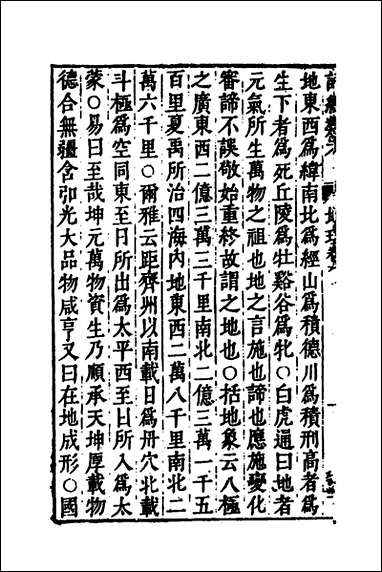 地東西爲緯南北爲經山爲積德川爲積刑高者爲
生下者爲死丘陵爲牡谿谷爲牝○白虎通曰地者
元氣所生萬物之祖也地之言施也諦也應施變化
審諦不誤敬始重終故謂之地也○括地象云八極
之廣東西二億三萬三千里南北二億三萬一千五
百里夏禹所治四海内地東西二萬八千里南北二
萬六千里○爾雅云距齊州以南載日爲丹穴北載
斗極爲空同東至日所出爲太平西至日所入爲太
蒙○易曰至哉坤元萬物資生乃順承天坤厚載物
德合無疆含弘光大品物咸亨又曰在地成形○國